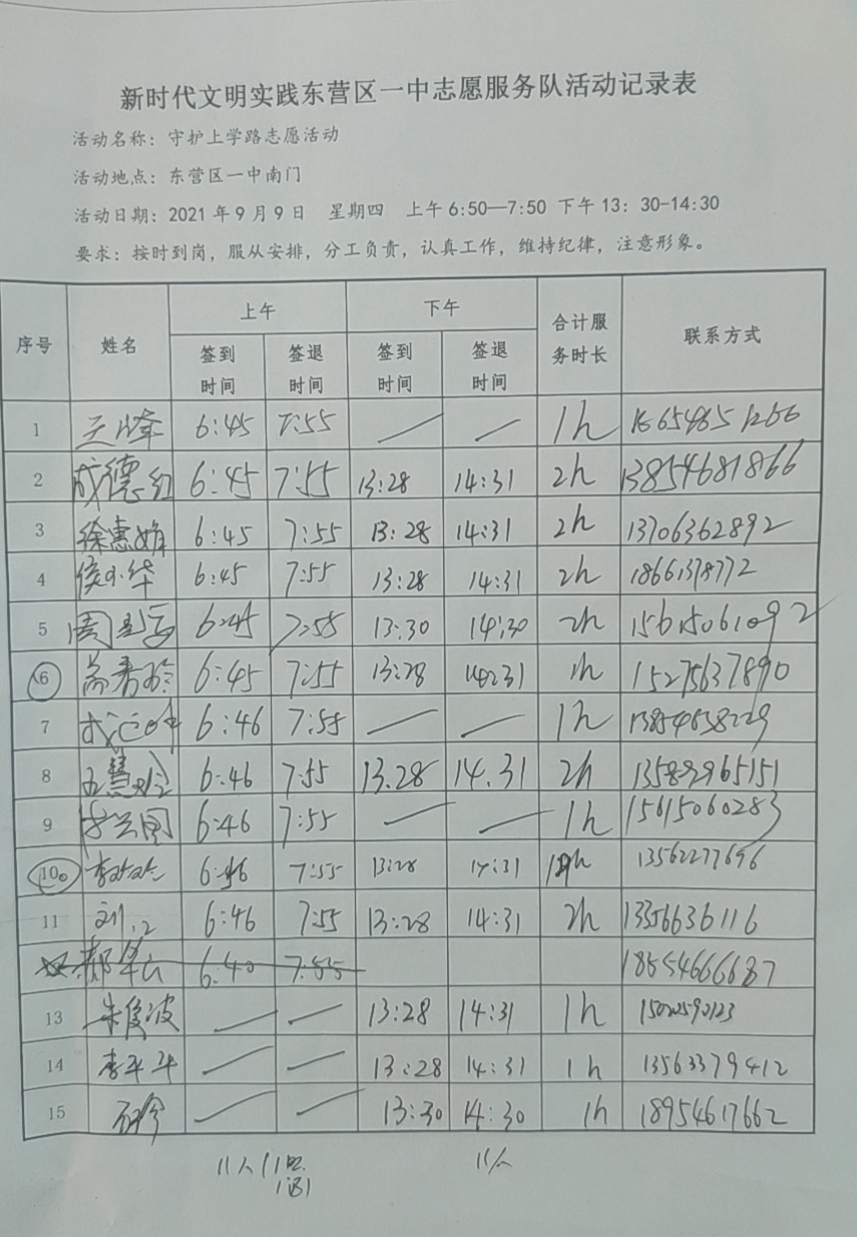 新时代文明实践东营区一中志愿服务队活动记录表
活动名称：守护上学路志愿活动
活动地点：东营区一中南门
活动日期：2021年9月9日 星期四 上午6:50—7:50 下午13：30-14:30
要求：按时到岗，服从安排，分工负责，认真工作，维持纪律，注意形象。
序号 姓名 上午 下午 合计服务时长 联系方式
签到时间 签退时间 签到时间 签退时间
1 6:45 7:55 — — 1h
2 成德红 6:45 7:55 13:28 14:31 2h 13854681866
3 徐惠娟 6:45 7:55 13:28 14:31 2h 13706362892
4 侯小华 6:45 7:55 13:28 14:31 2h 18661378772
5 6:45 7:55 13:30 14:30 2h 15615061092
6 6:45 7:55 13:28 14:31 1h 15275637890
7 6:46 7:55 — — 1h 13854658229
8 王慧玲 6:46 7:55 13.28 14.31 2h 13589965151
9 6:46 7:55 — — 1h 15615060283
10 6:46 7:55 13:28 14:31 13562277696
11 6:46 7:55 13:28 14:31 2h 13356636116
6:40 7:55 18554666687
13 朱俊波 — — 13:28 14:31 1h
14 李平平 — — 13:28 14:31 1h 13563379412
15 — — 13:30 14:30 1h 18954617662
11人 11人